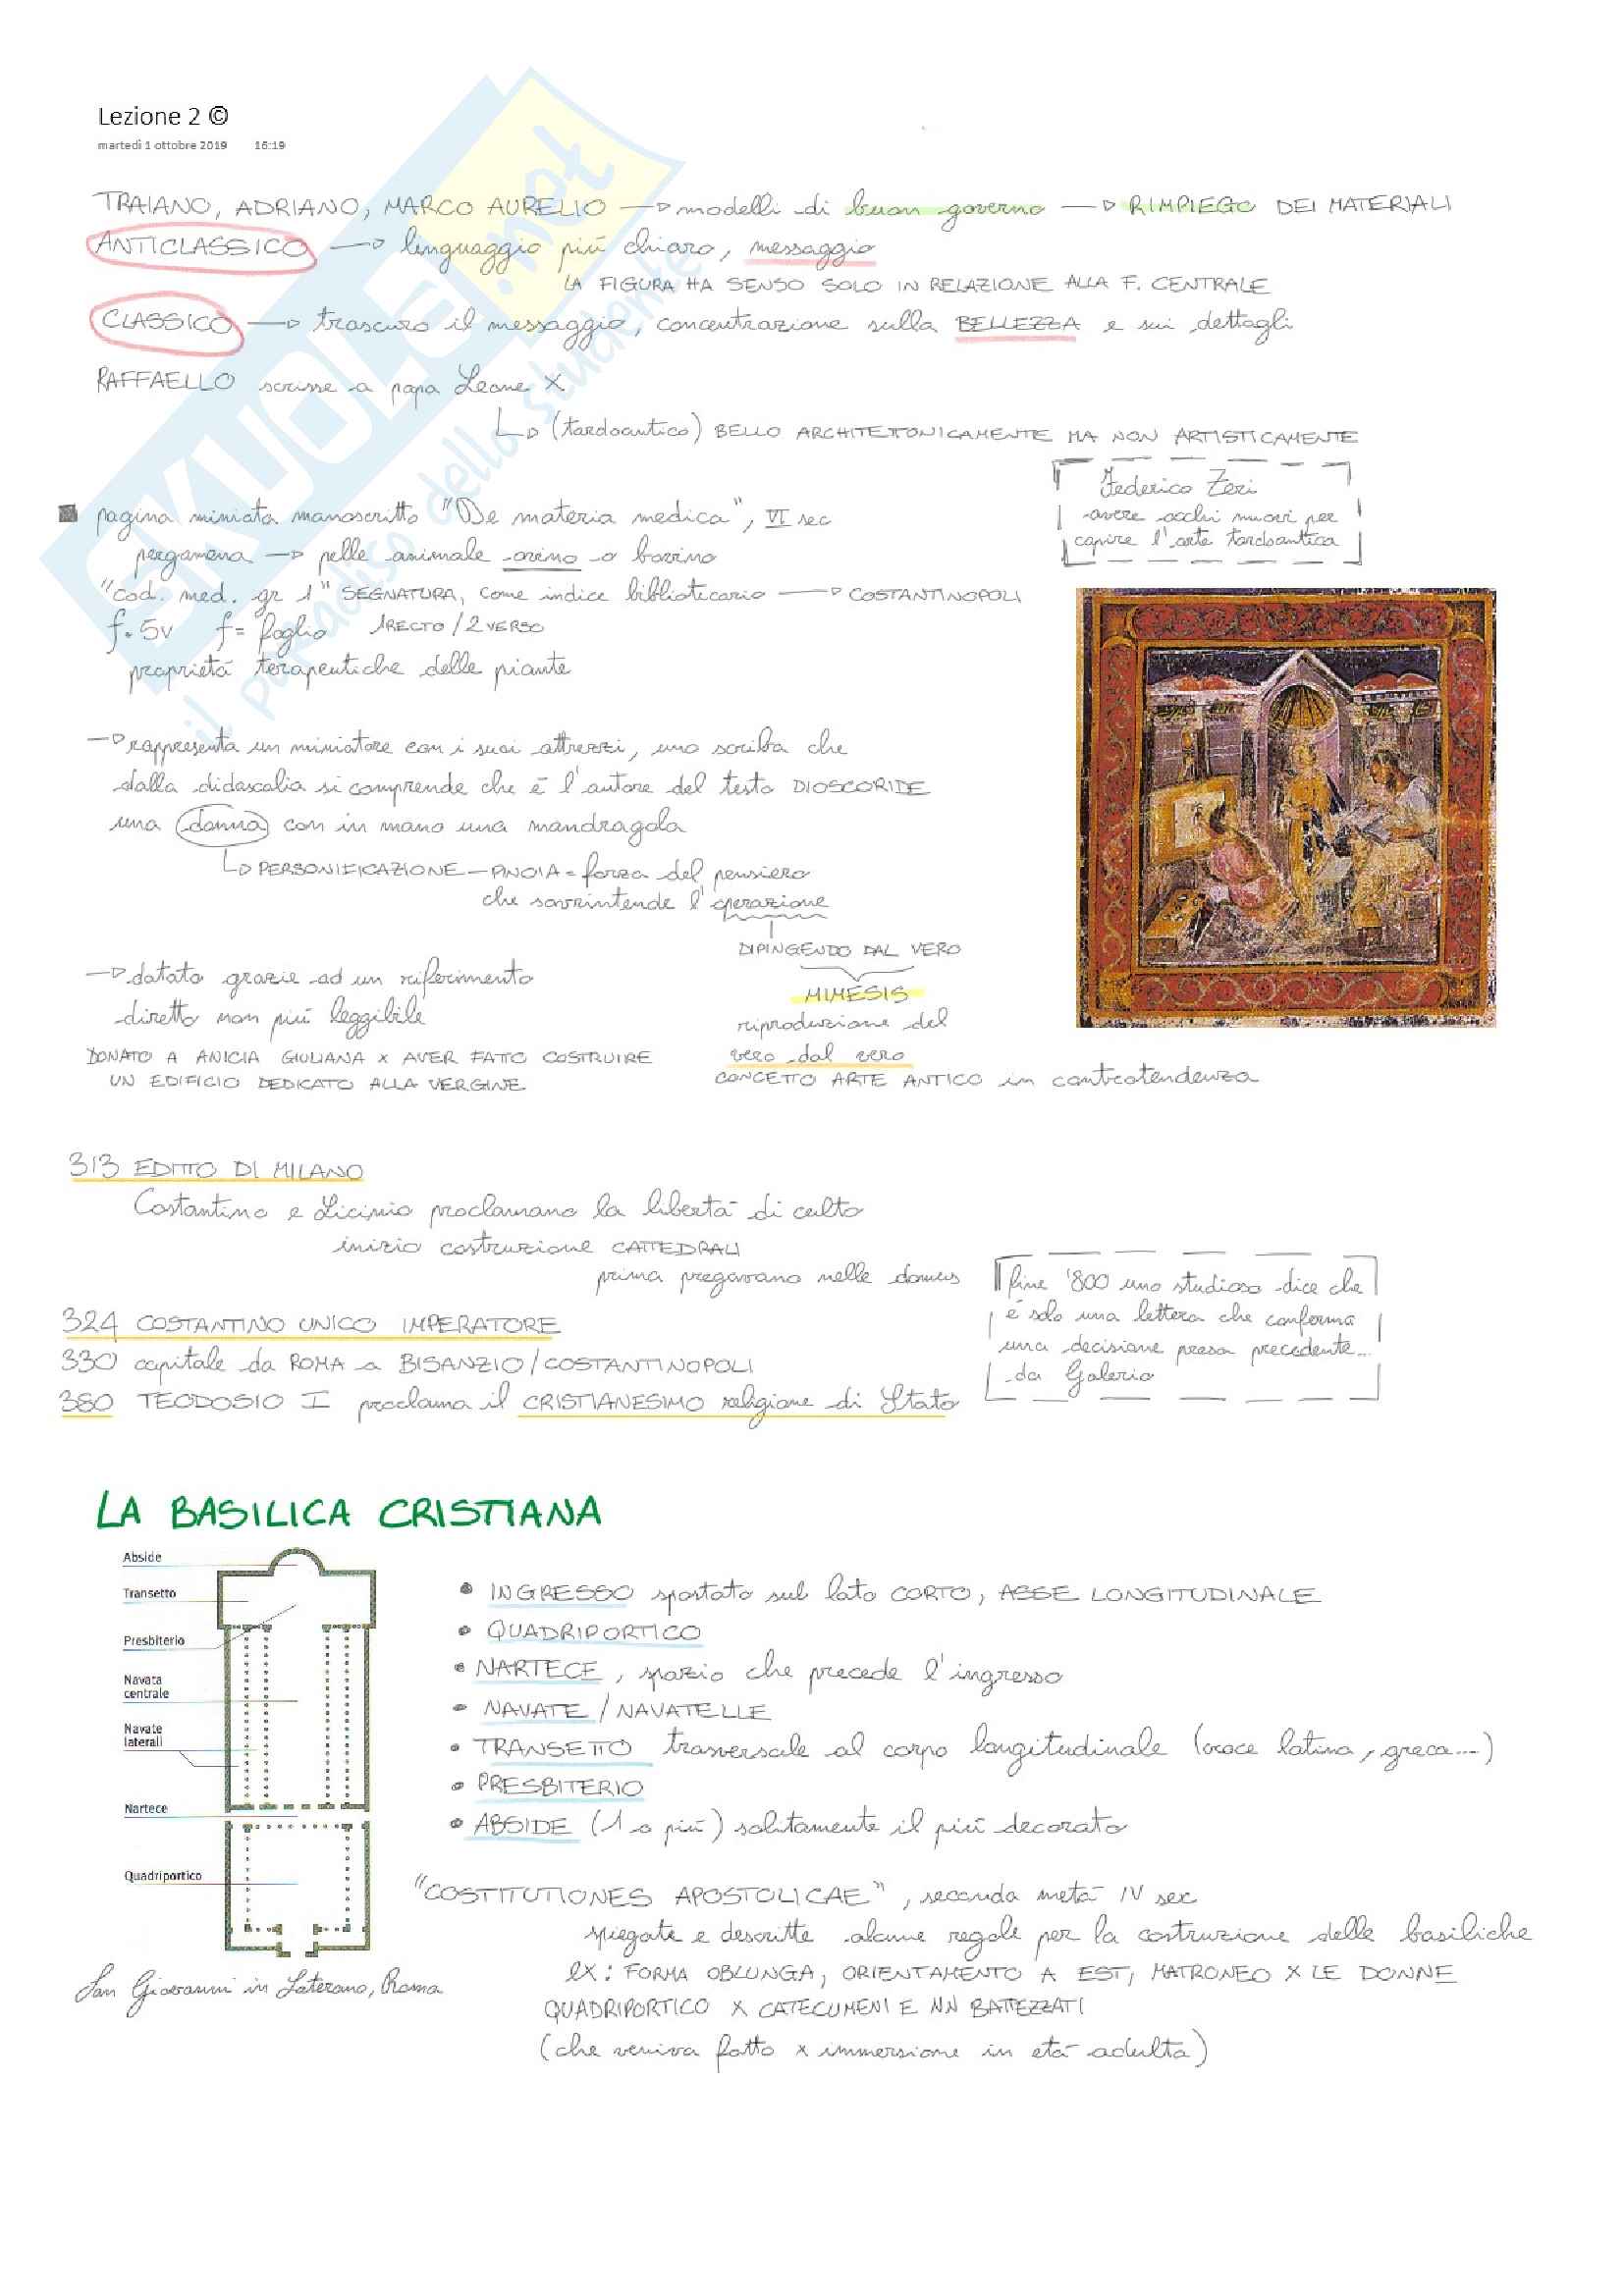 Lezione 2 ©
martedì 1 ottobre 2019 16:19
TRAIANO, ADRIANO, MARCO AURELIO → modelli di buon governo → RIMPIEGO DEI MATERIALI
ANTICLASSICO → linguaggio più chiaro, messaggio
LA FIGURA HA SENSO SOLO IN RELAZIONE ALLA F. CENTRALE
CLASSICO → trascuro il messaggio, concentrazione sulla BELLEZZA e sui dettagli
RAFFAELLO scrisse a papa Leone X
↳ (tardoantico) BELLO ARCHITETTONICAMENTE MA NON ARTISTICAMENTE
Federico Zeri
avere occhi nuovi per
capire l'arte tardoantica
pagina miniata manoscritto "De materia medica", VI sec
pergamena → pelle animale ovino o bovino
"Cod. med. gr 1" SEGNATURA, come indice bibliotecario → COSTANTINOPOLI
f. 5v f = foglio 1RECTO / 2 VERSO
proprietà terapeutiche delle piante
→ rappresenta un miniatore con i suoi attrezzi, uno scriba che
dalla didascalia si comprende che è l'autore del testo DIOSCORIDE
una donna con in mano una mandragola
↳ PERSONIFICAZIONE - PNOIA = forza del pensiero
che sovrintende l'operazione
DIPINGENDO DAL VERO
MIMESIS
riproduzione del
vero dal vero
CONCETTO ARTE ANTICO in controtendenza
→ datato grazie ad un riferimento
diretto non più leggibile
DONATO A ANICIA GIULIANA x AVER FATTO COSTRUIRE
UN EDIFICIO DEDICATO ALLA VERGINE
313 EDITTO DI MILANO
Costantino e Licinio proclamano la libertà di culto
inizio costruzione CATTEDRALI
prima pregavano nelle domus
fine '800 uno studioso dice che
è solo una lettera che conferma
una decisione presa precedente...
da Galerio
324 COSTANTINO UNICO IMPERATORE
330 capitale da ROMA a BISANZIO/COSTANTINOPOLI
380 TEODOSIO I proclama il CRISTIANESIMO religione di Stato
LA BASILICA CRISTIANA
Abside
Transetto
Presbiterio
Navata
centrale
Navate
laterali
Nartece
Quadriportico
San Giovanni in Laterano, Roma
• INGRESSO spostato sul lato CORTO, ASSE LONGITUDINALE
• QUADRIPORTICO
• NARTECE, spazio che precede l'ingresso
• NAVATE / NAVATELLE
• TRANSETTO trasversale al corpo longitudinale (croce latina, greca...)
• PRESBITERIO
• ABSIDE (1 o più) solitamente il più decorato
"COSTITUTIONES APOSTOLICAE", seconda metà IV sec
spiegate e descritte alcune regole per la costruzione delle basiliche
ex: FORMA OBLUNGA, ORIENTAMENTO A EST, MATRONEO X LE DONNE
QUADRIPORTICO X CATECUMENI E NN BATTEZZATI
(che veniva fatto x immersione in età adulta)
SKUOLA.net
il paradiso dello studente